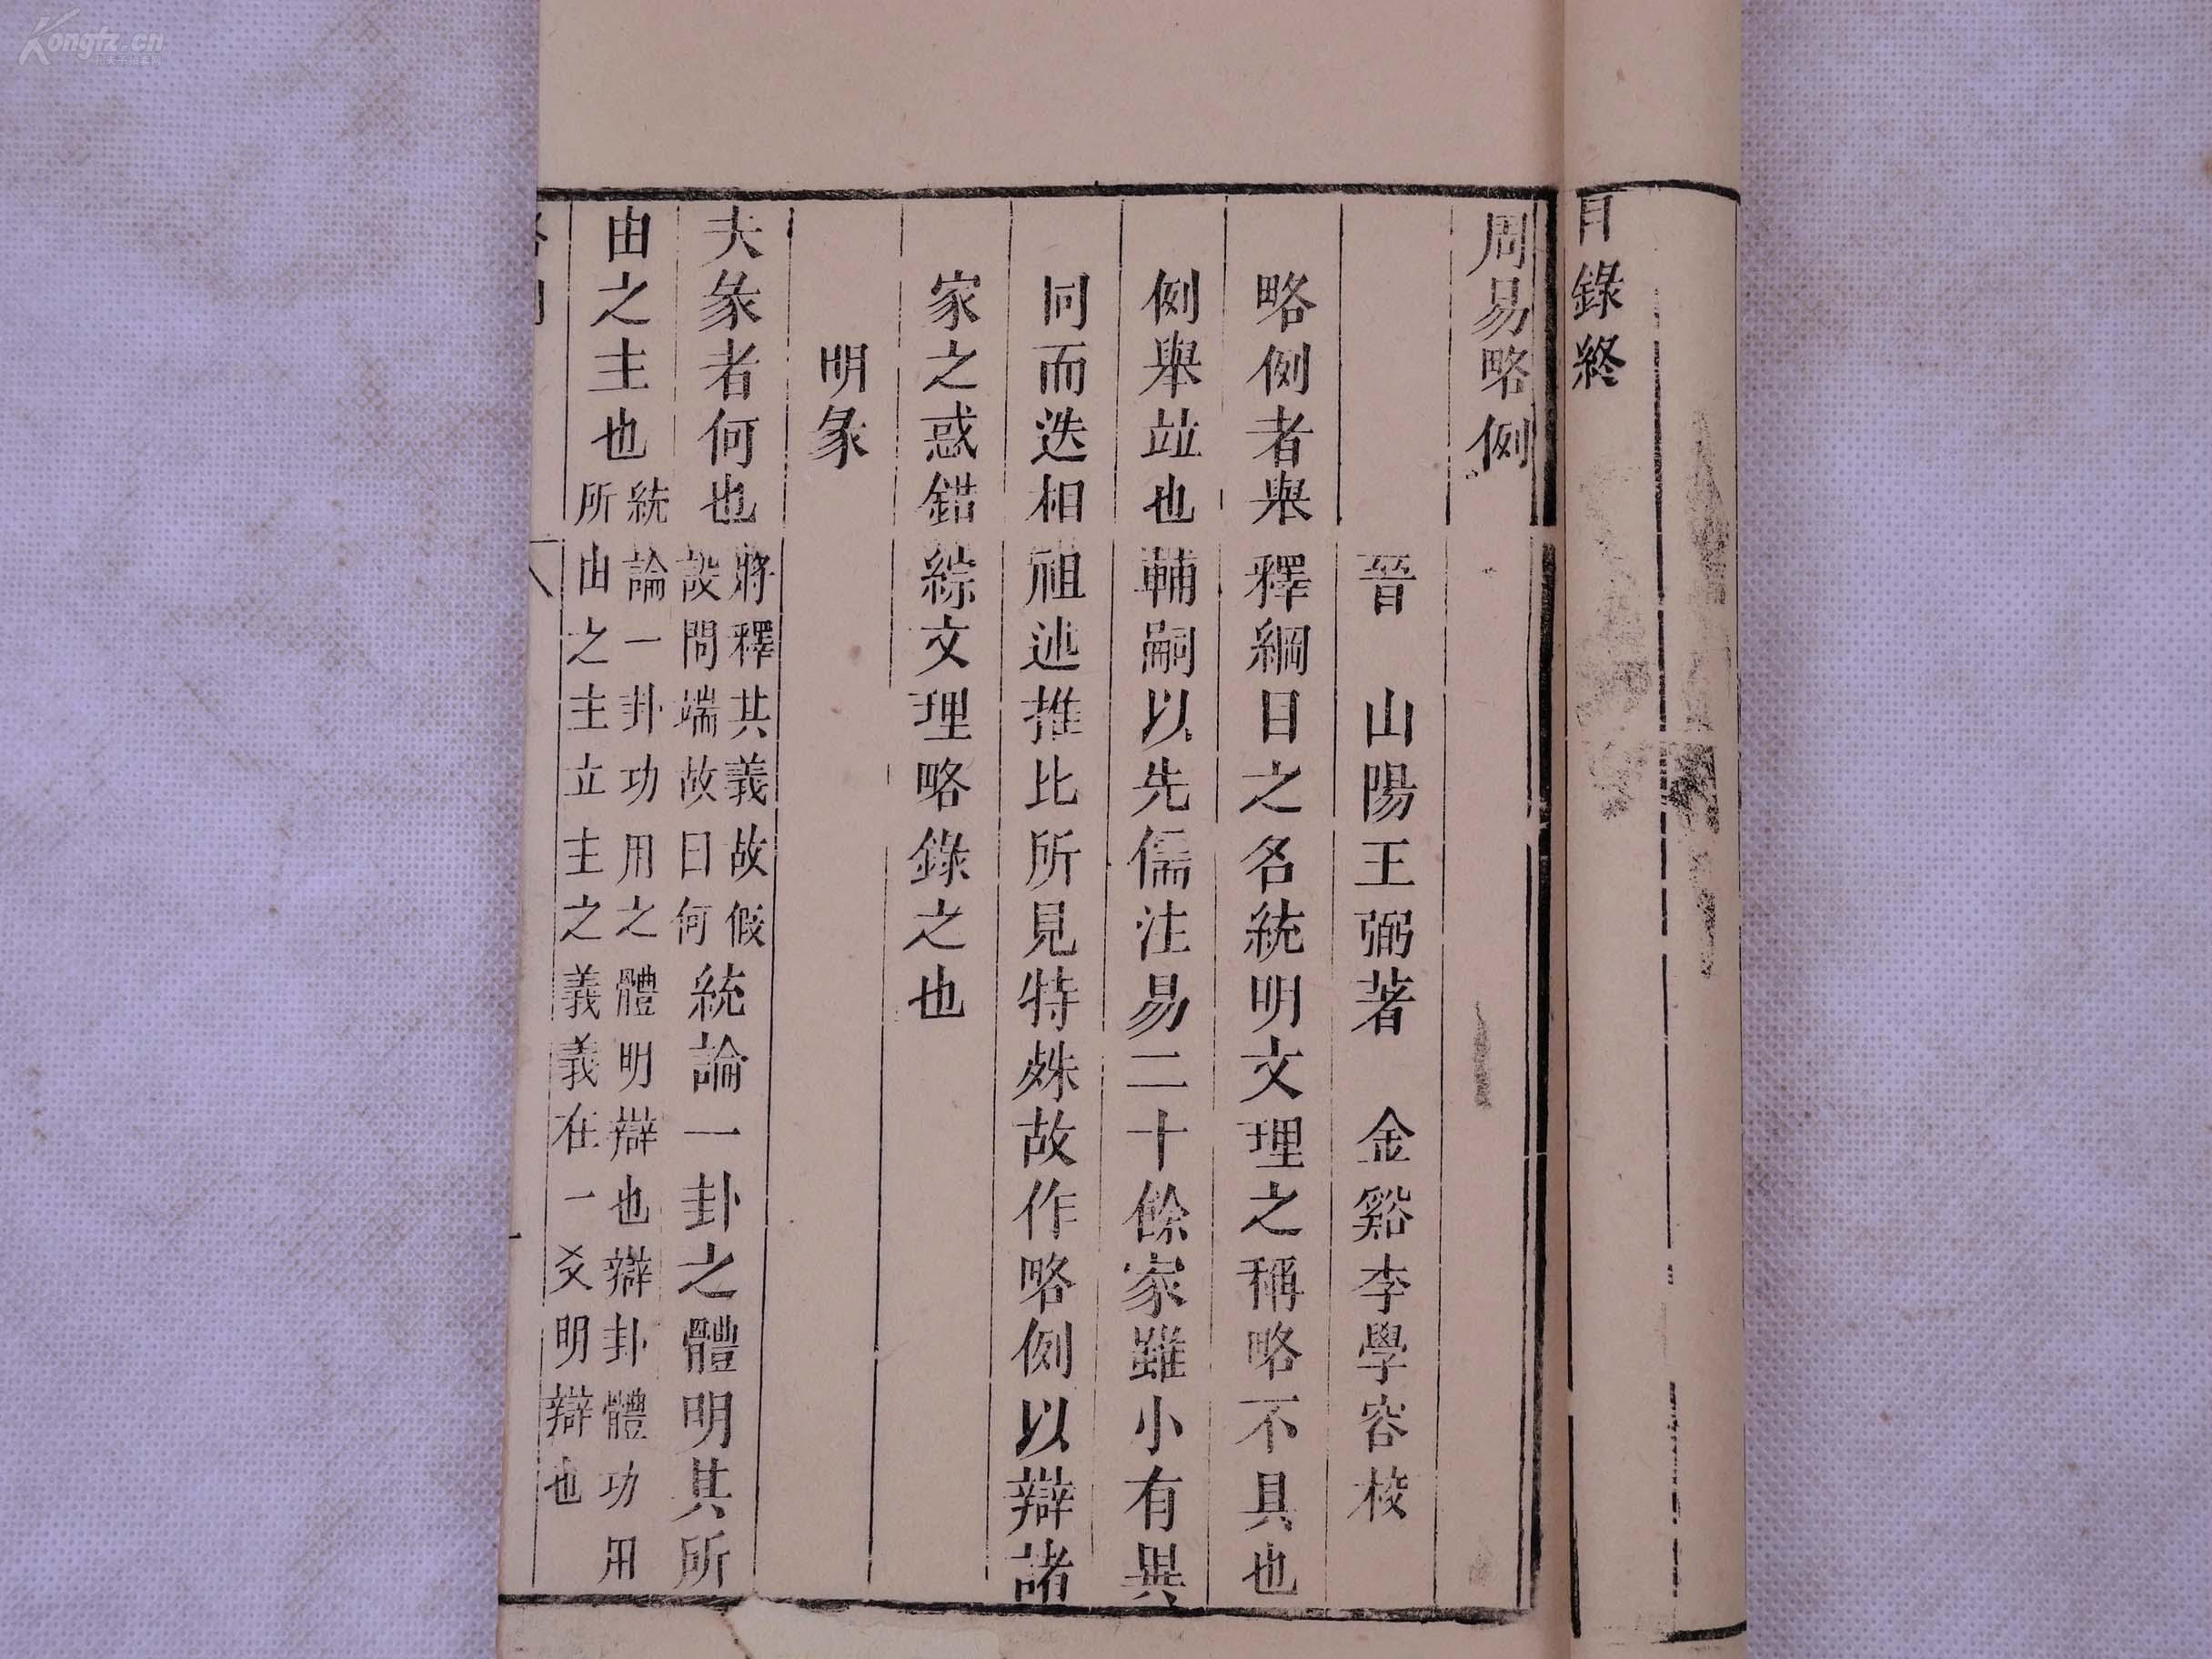 目錄終
周易略例
晉 山陽王弼著 金谿李學容校
略例者舉釋綱目之名統明文理之稱略不具也
例舉竝也輔嗣以先儒注易二十餘家雖小有異
同而迭相祖述推比所見特殊故作略例以辯諸
家之惑錯綜文理略錄之也
明彖
夫彖者何也將釋其義故假設問端故曰何統論一卦之體明其所
由之主也統論一卦功用之體明辯也辯卦體功用所由之主立主之義義在一爻明辯也
Kongfz.cn